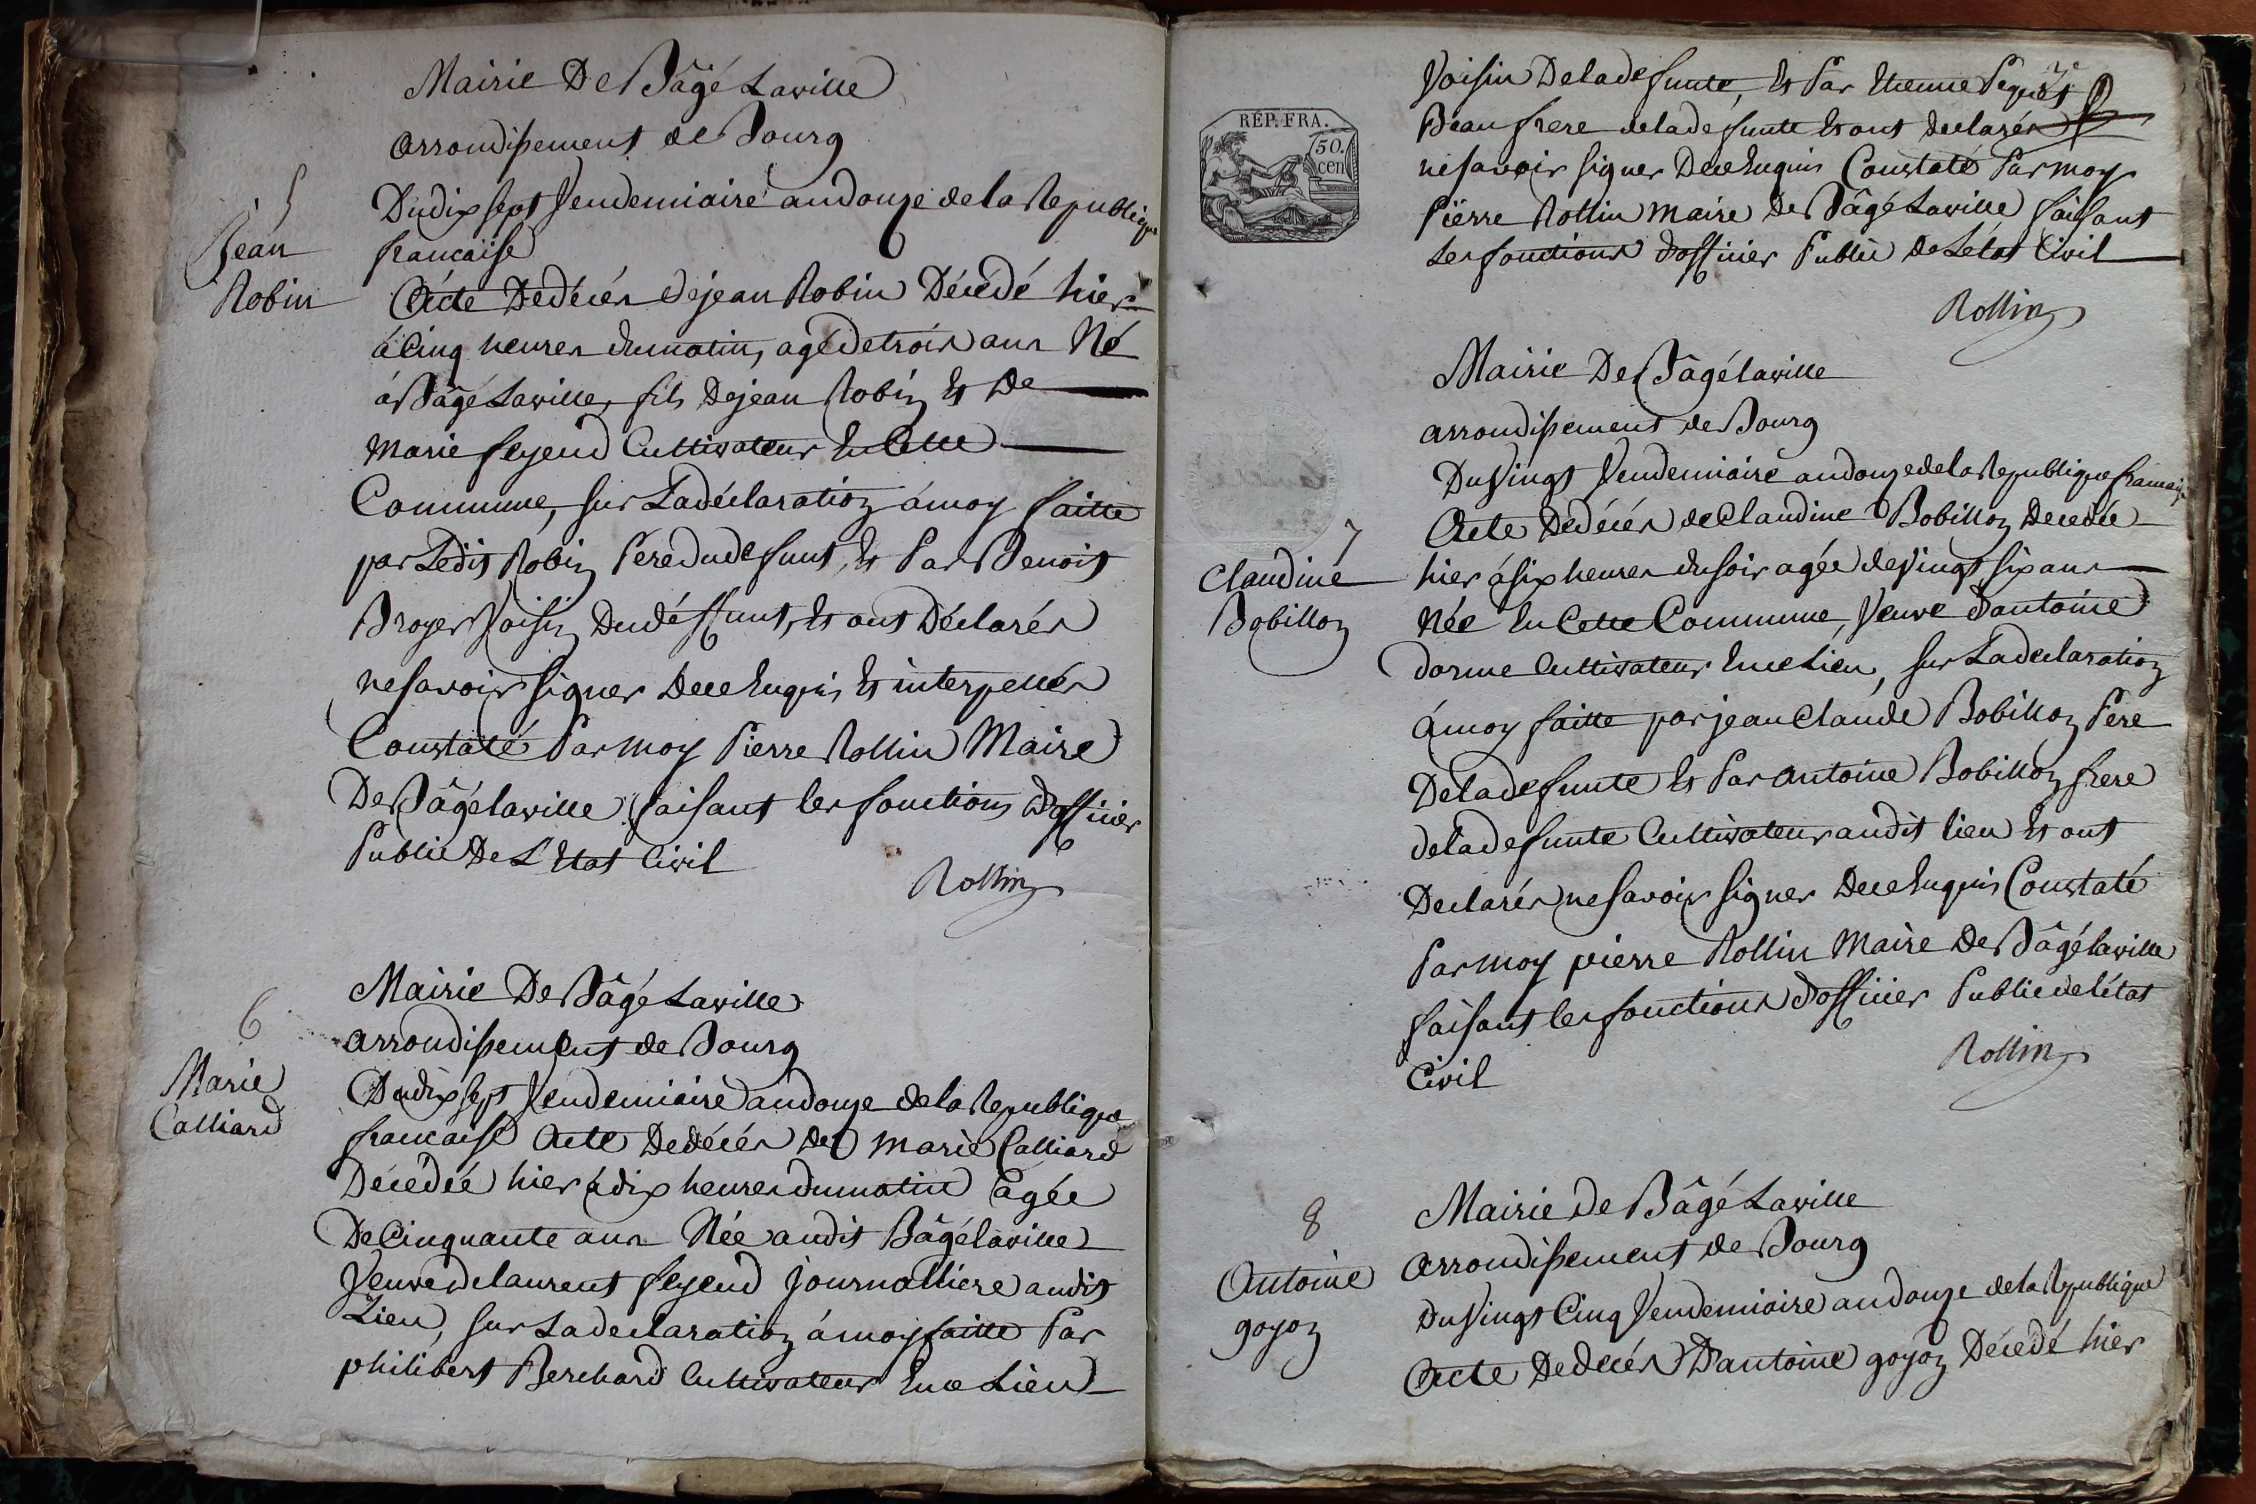 Mairie De Bâgé Laville
arrondissement de Bourg
5
Jean
Robin
Du dix sept Vendemiaire an douze de la Republique
francaise
Acte De décés de jean Robin Décedé hier
á Cinq heures du matin, agé de trois ans Né
á Bâgé Laville, fils De jean Robin Et De
Marie feyend Cultivateur En Cette
Commune, sur La déclaration á moy faitte
par Ledit Robin Pére du defunt, Et Par Benoit
Broyer Voisin Du déffunt, Et ont Déclarés
ne savoir signer De ce Enquis Et interpellés
Constaté Par moy Pierre Rollin Maire
De Bâgé laville faisant les fonctions d'officier
Public De L'Etat Civil
Rollin
6
Marie
Calliard
Mairie De Bâgé Laville
arrondissement de Bourg
Du dix sept Vendemiaire an douze de la Republique
francaise Acte De décés de Marie Calliard
Décédée hier á dix heures du matin agée
De Cinquante ans Née audit Bâgé laville
Veuve de laurent feyend journalliere audit
Lieu, sur La declaration á moy faitte Par
philibert Berchard Cultivateur En ce Lieu
Voisin De la defunte, Et Par Etienne Pequet
Beau frere de la defunte Et ont declarés
ne savoir signer De ce Enquis Constaté Par moy
Pierre Rollin maire De Bâgé Laville faisant
Les fonctions d'officier Public De L'état Civil
Rollin
REP. FRA.
50.
cen
Mairie De Bâgé laville
arrondissement de Bourg
Du Vingt Vendemiaire an douze de la Republique francaise
7
Claudine
Bobillon
Acte De décés de Claudine Bobillon Decedée
hier á six heures du soir agée de Vingt six ans
Née En Cette Commune, Veuve d'antoine
dorme Cultivateur En ce Lieu, sur La declaration
á moy faitte par jean Claude Bobillon Pere
De la defunte Et Par antoine Bobillon frere
de la defunte Cultivateur audit lieu Et ont
Declarés ne savoir signer De ce Enquis Constaté
Par moy pierre Rollin Maire De Bâgé laville
faisant les fonctions d'officier Public de l'état
Civil
Rollin
8
Antoine
goyon
Mairie de Bâgé Laville
arrondissement de Bourg
Du Vingt Cinq Vendemiaire an douze de la Republique
Acte De decés D'antoine goyon Décedé hier